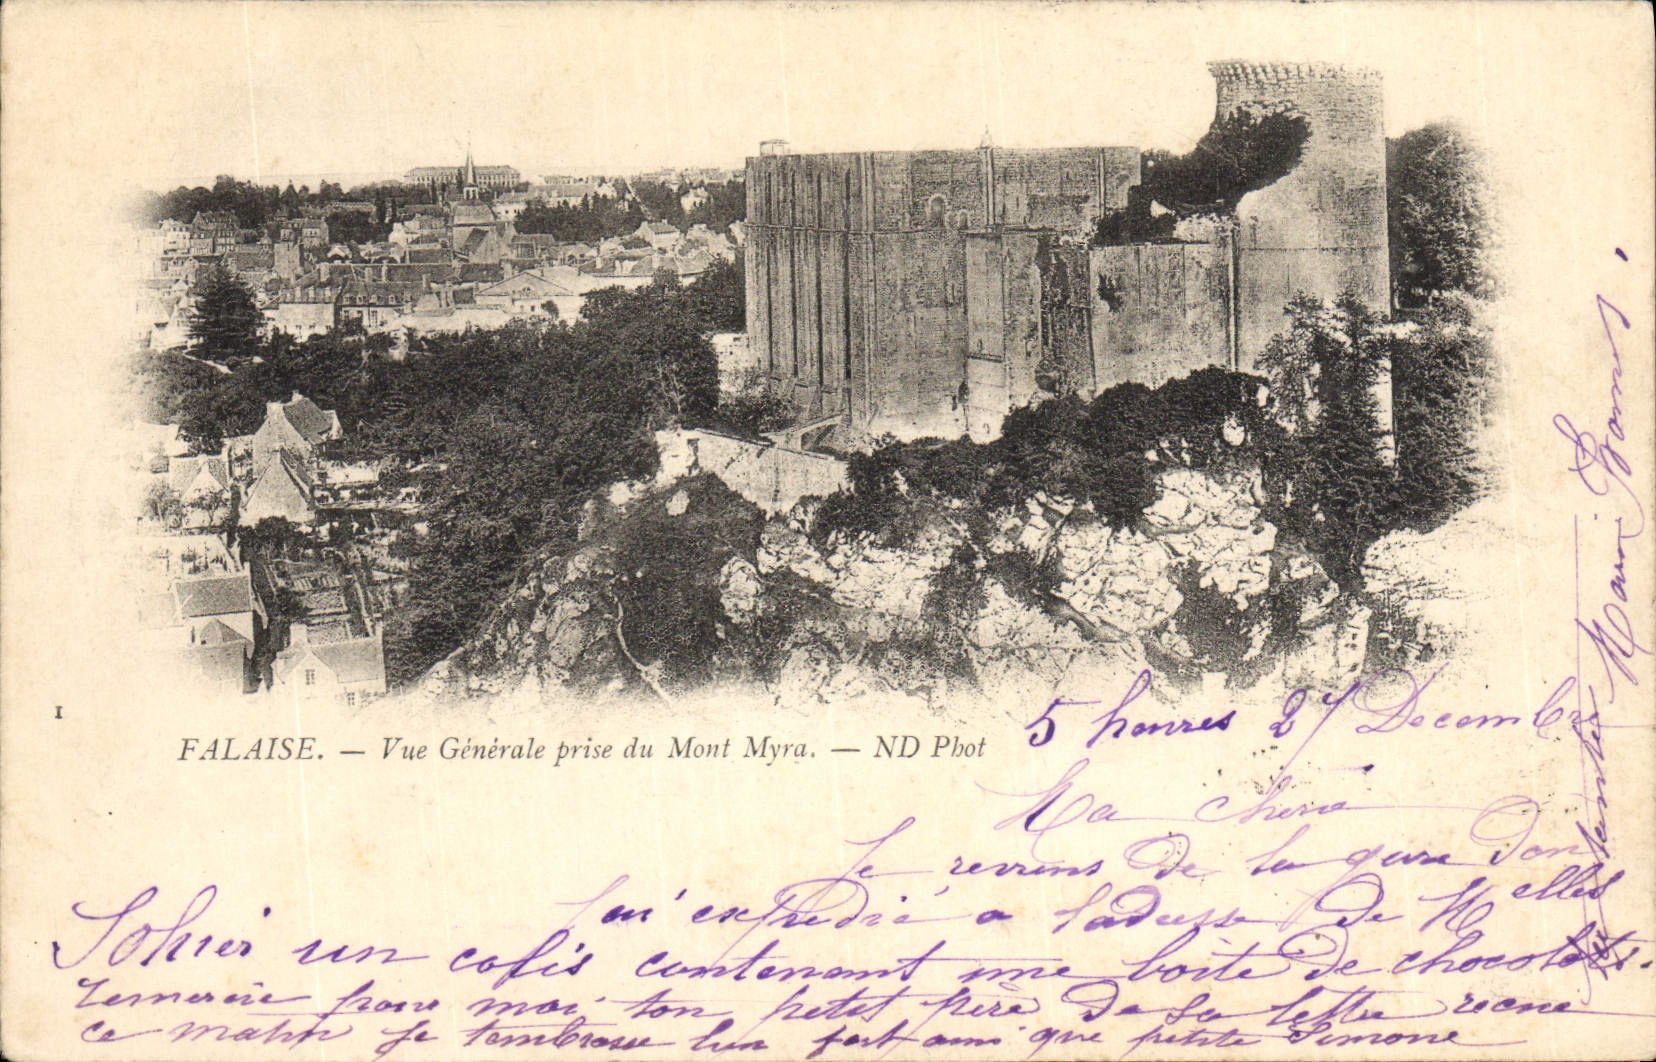 1
FALAISE. — Vue Générale prise du Mont Myra. — ND Phot
5 heures 27 Decembre
Ma chere
Je reviens de la gare d'on
j'ai expedié a l'adresse de Melles
Sohier un colis contenant une boite de chocolats.
remercie pour moi ton petit père de sa lettre recue
ce matin Je t'embrasse bien fort ami que petite Simone
Marie